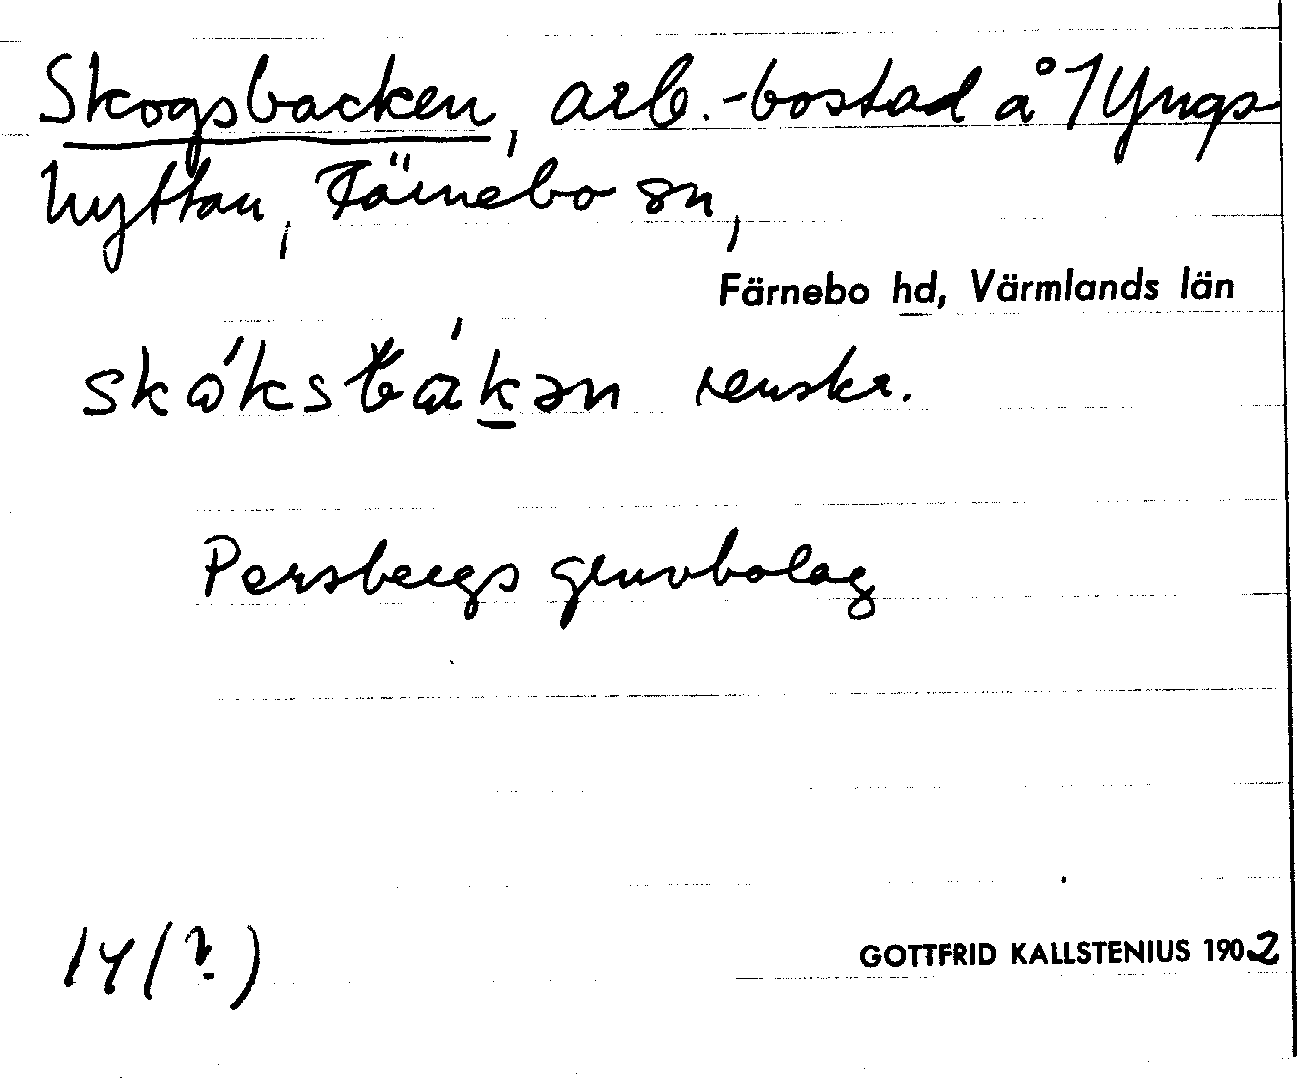 Skogsbacken, arb.-bostad å 1 Yngs-
hyttan, Färnebo sn,
Färnebo hd, Värmlands län
skɷ́ksbákən renskr.
Persbergs gruvbolag
14(?)
GOTTFRID KALLSTENIUS 1902